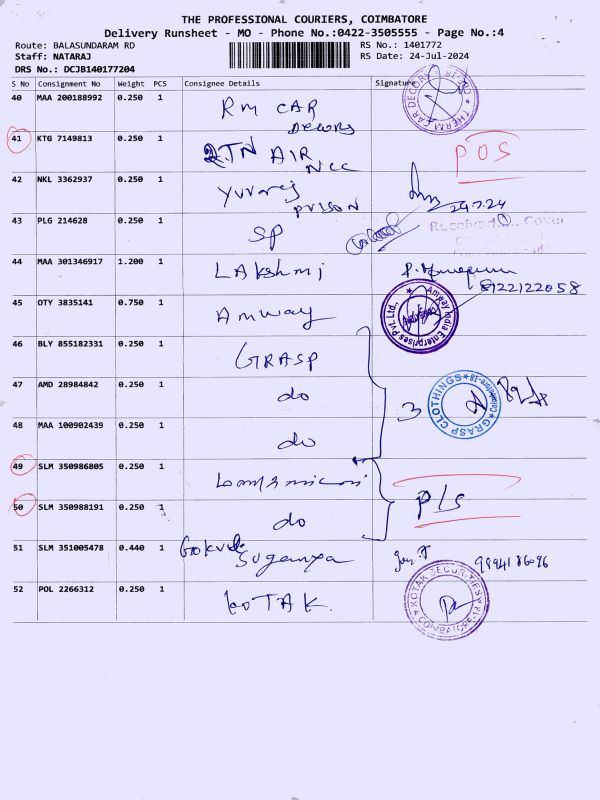 THE PROFESSIONAL COURIERS, COIMBATORE
Delivery Runsheet - MO - Phone No.:0422-3505555 - Page No.:4
Route: BALASUNDARAM RD RS No.: 1401772
Staff: NATARAJ RS Date: 24-Jul-2024
DRS No.: DCJB140177204
S No Consignment No Weight PCS Consignee Details Signature
40 MAA 200188992 0.250 1 RM CAR
DECORS
41 KTG 7149813 0.250 1 2TN AIR POS
NCC
42 NKL 3362937 0.250 1 Yuvraj
prison 24.7.24
43 PLG 214628 0.250 1 SP Received
44 MAA 301346917 1.200 1 LAkshmi
8122122058
45 OTY 3835141 0.750 1 Amway Amway India Enterprises Pvt. Ltd.,
46 BLY 855182331 0.250 1 GRASP
47 AMD 28984842 0.250 1 do 3 GRASP CLOTHINGS * Coimbatore-18 *
48 MAA 100902439 0.250 1 do
49 SLM 350986805 0.250 1
50 SLM 350988191 0.250 1 do P/S
51 SLM 351005478 0.440 1 Suganya 9994186096
52 POL 2266312 0.250 1 KOTAK KOTAK SECURITIES